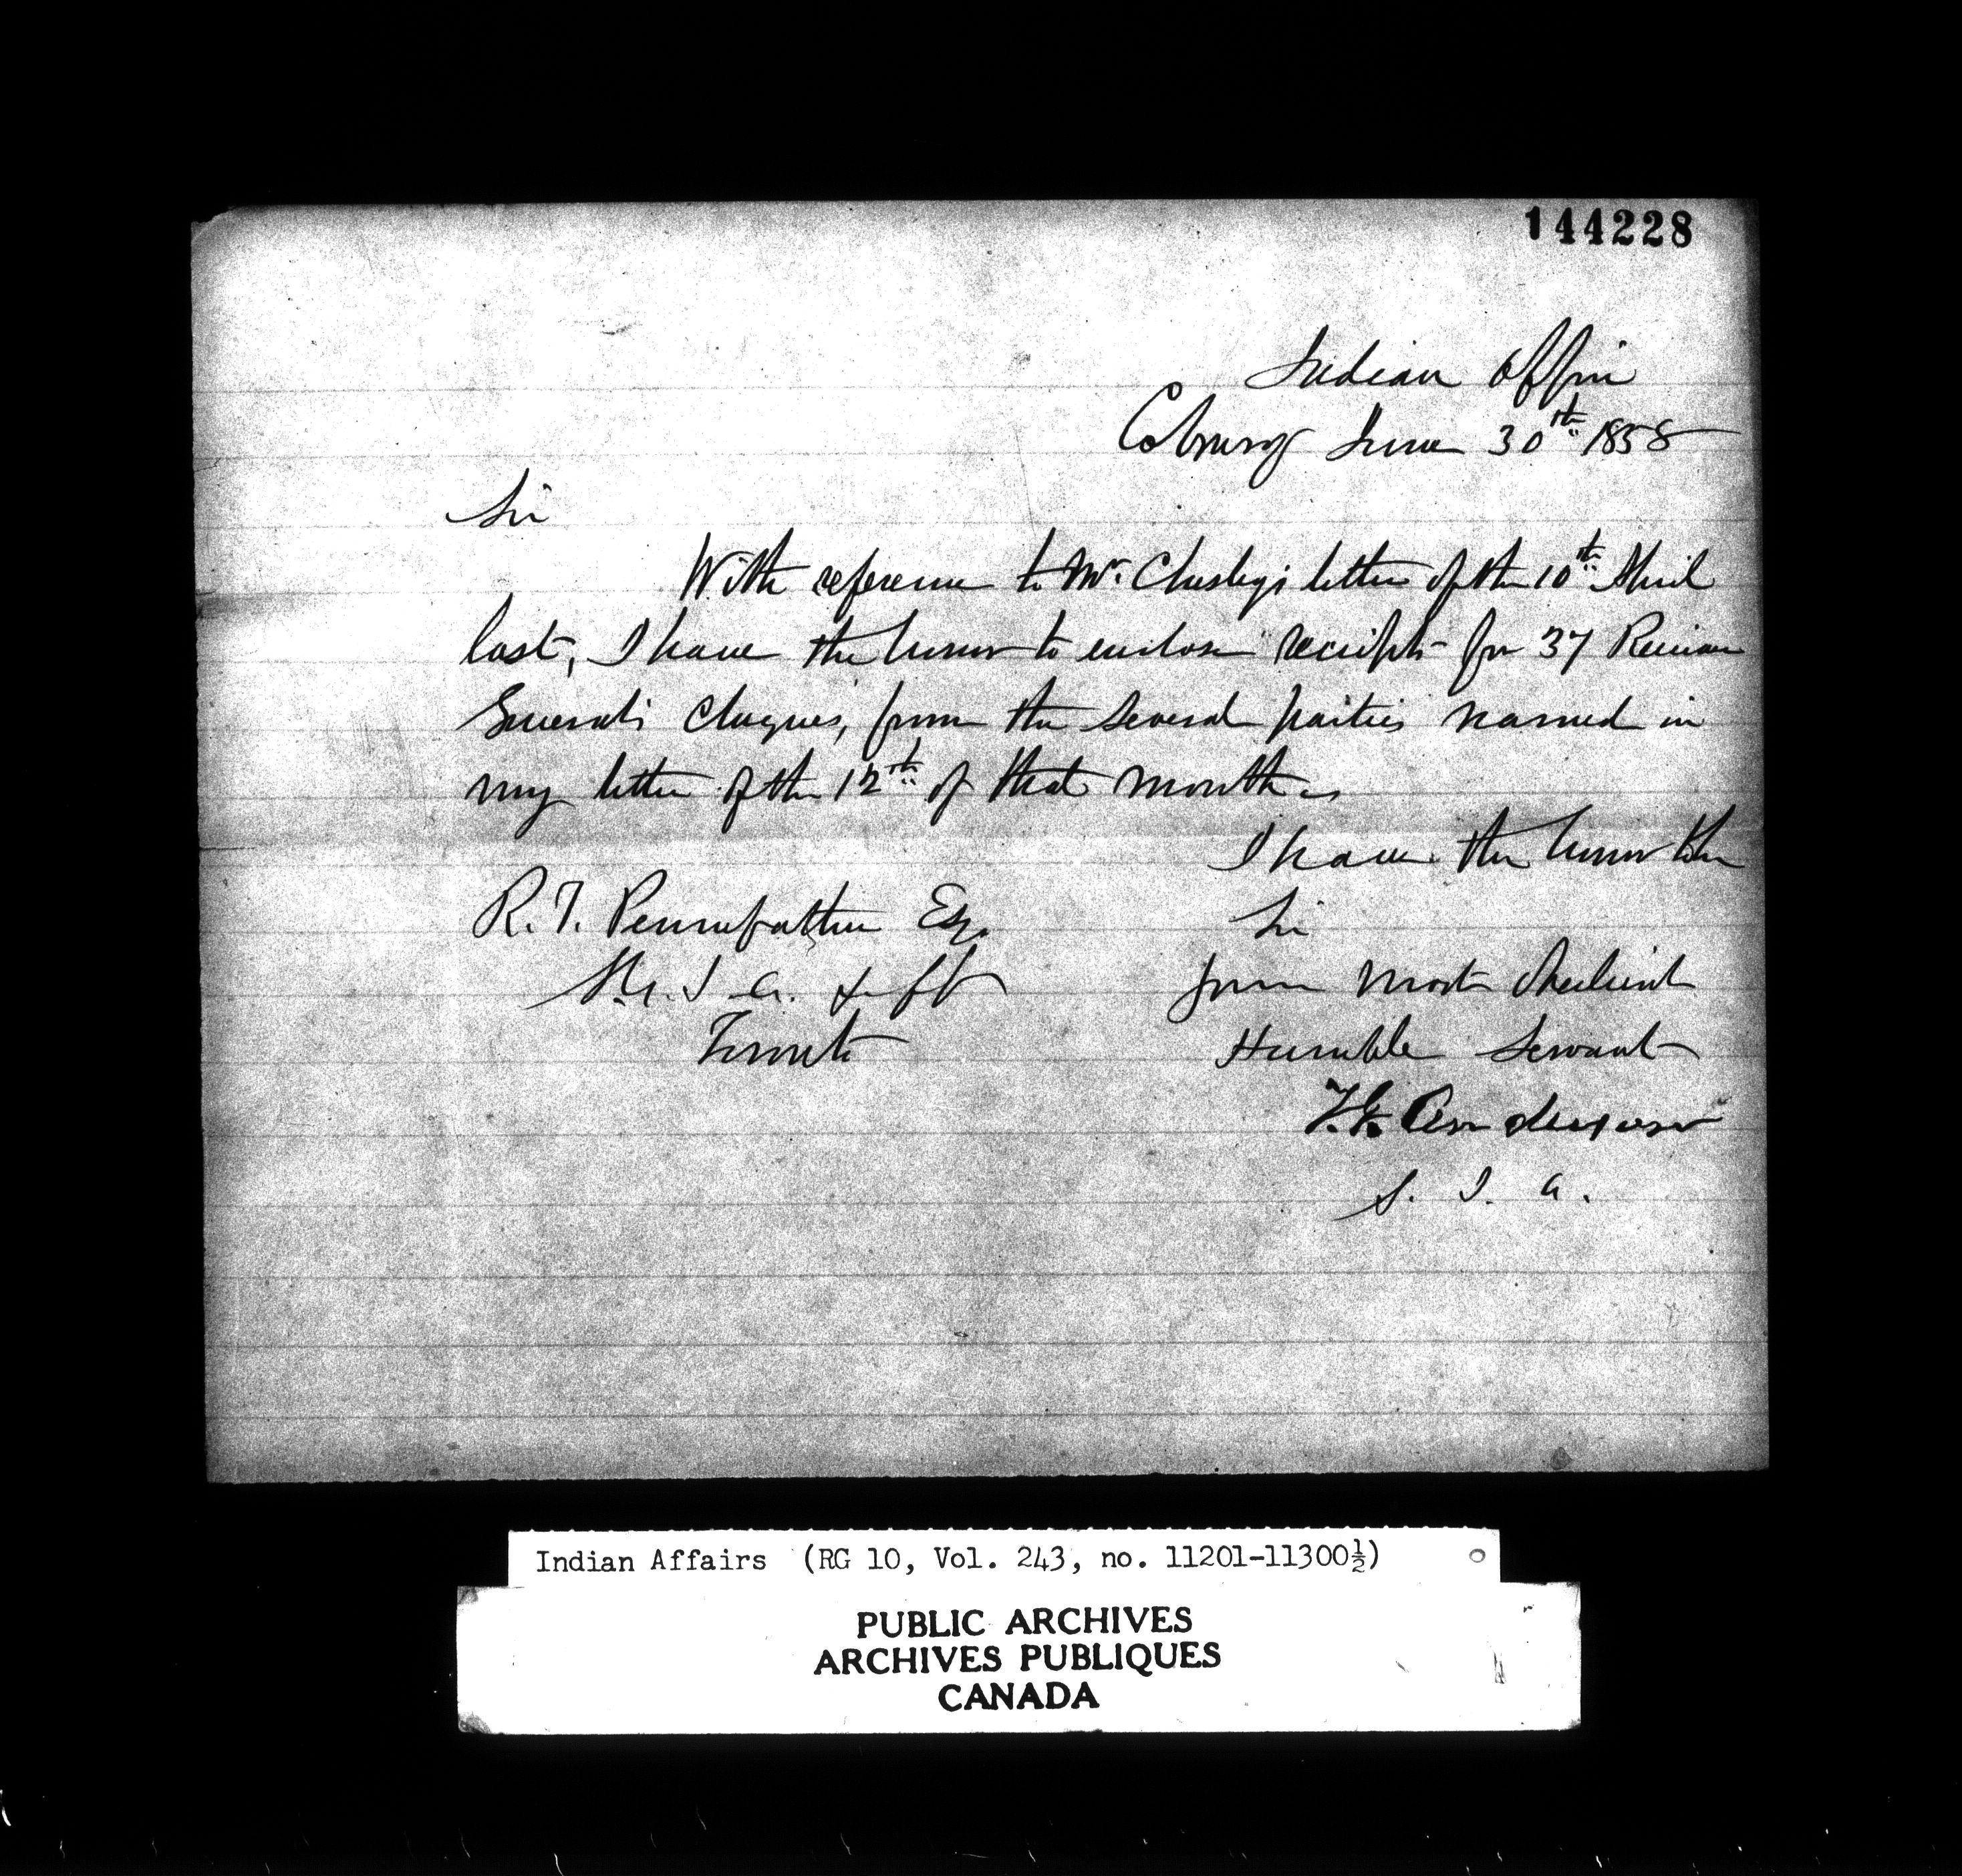 144228
Indian Office
Cobourg June 30th 1858
Sir
With reference to Mr. Chesley's letter of the 10th April
last, I have the honor to enclose receipts for 37 Receiver
General's Cheques, from the several parties named in
my letter of the 12th of that month.
I have the honor to be
Sir
your most Obedient
Humble Servant
T.G. Anderson
S. I. A.
R. T. Pennefather Esq.
S. G. I. A. &c &c
Toronto
Indian Affairs (RG 10, Vol. 243, no. 11201-11300½)
PUBLIC ARCHIVES
ARCHIVES PUBLIQUES
CANADA